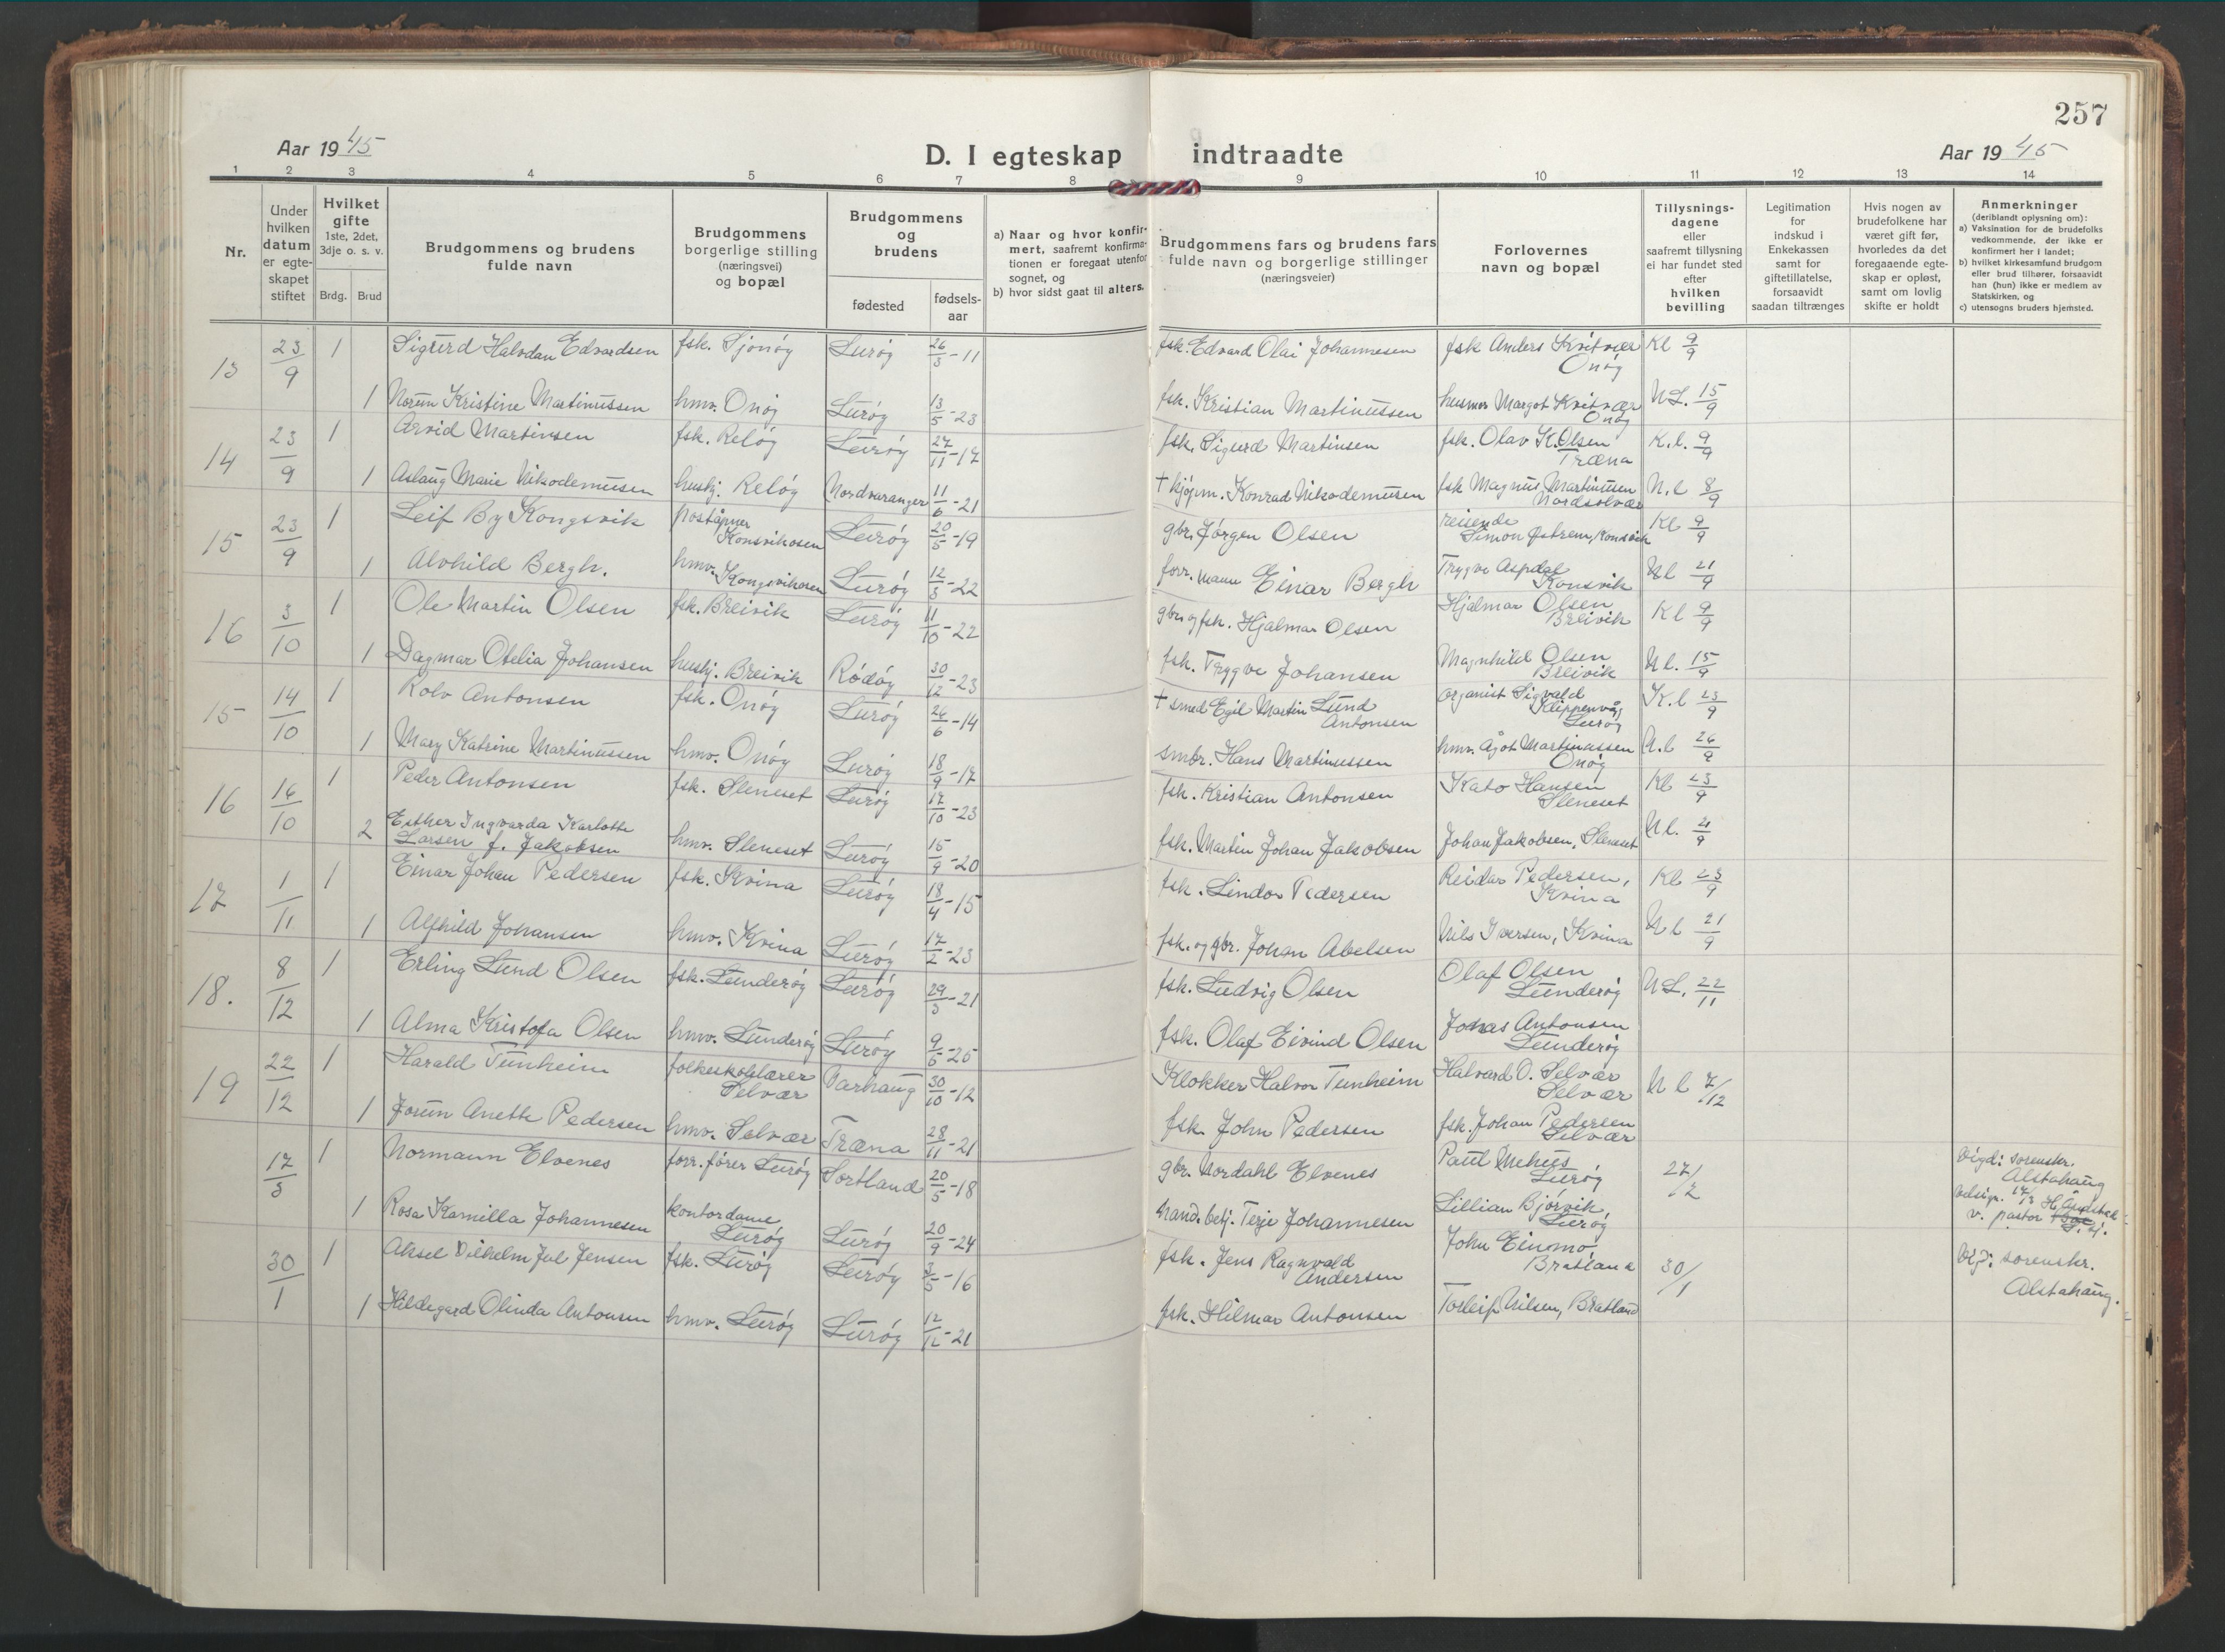 257
Aar 1945
D. I egteskap indtraadte
Aar 1945
1 2 3 4 5 6 7 8 9 10 11 12 13 14
Nr.
Under hvilken datum er egte-skapet stiftet
Hvilket gifte 1ste, 2det, 3dje o. s. v.
Brdg. Brud
Brudgommens og brudens fulde navn
Brudgommens borgerlige stilling (næringsvei) og bopæl
Brudgommens og brudens
fødested
fødsels-aar
a) Naar og hvor konfir-mert, saafremt konfirma-tionen er foregaat utenfor sognet, og
b) hvor sidst gaat til alters.
Brudgommens fars og brudens fars fulde navn og borgerlige stillinger (næringsveier)
Forlovernes navn og bopæl
Tillysnings-dagene eller saafremt tillysning ei har fundet sted efter hvilken bevilling
Legitimation for indskud i Enkekassen samt for giftetillatelse, forsaavidt saadan tiltrænges
Hvis nogen av brudefolkene har været gift før, hvorledes da det foregaaende egte-skap er opløst, samt om lovlig skifte er holdt
Anmerkninger (deriblandt oplysning om):
a) Vaksination for de brudefolks vedkommende, der ikke er konfirmert her i landet;
b) hvilket kirkesamfund brudgom eller brud tilhører, forsaavidt han (hun) ikke er medlem av Statskirken, og
c) utensogns bruders hjemsted.
13 23/9 1 Sigurd Halvdan Edvardsen fsk. Sjonøy Lurøy 26/3-11 fsk. Edvard Olai Johannesen fsk Anders Kvitvær Onøy Kl 9/9
1 Norun Kristine Martinussen hmv. Onøy Lurøy 13/5-23 fsk. Kristian Martinussen husmor Margot Kvitvær Onøy N.L. 15/9
14 23/9 1 Arvid Martinsen fsk. Reløy Lurøy 27/11-17 fsk. Sigurd Martinsen fsk. Olav K. Olsen Træna K.l. 9/9
1 Aslaug Marie Nikodemusen hushj. Reløy Nordvaranger 11/6-21 † kjøpm. Konrad Nikodemusen fsk Magnus Martinusen Nordsolvær N.l 8/9
15 23/9 1 Leif By Kongsvik poståpner Konsvikosen Lurøy 20/5-19 gbr. Jørgen Olsen reisende Simon Østrem, Konsvik Kl 9/9
1 Alvhild Bergh. hmv. Kongsvikosen Lurøy 12/3-22 forr. mann Einar Bergh Trygve Aspdal Konsvik Nl 21/9
16 3/10 1 Ole Martin Olsen fsk. Breivik Lurøy 11/10-22 gbr. og fsk. Hjalmar Olsen Hjalmar Olsen Breivik Kl 9/9
1 Dagmar Otelia Johansen hushj. Breivik Rødøy 30/12-23 fsk. Trygve Johansen Magnhild Olsen Breivik Nl. 15/9
15 14/10 1 Rolv Antonsen fsk. Onøy Lurøy 26/6-14 † smed Egil Martin Lund Antonsen organist Sigvald Klippenvåg Lurøy K.l 23/9
1 Mary Katrine Martinussen hmv. Onøy Lurøy 18/9-17 smbr. Hans Martinussen hmv. Ågot Martinussen Onøy N.l 26/9
16 16/10 1 Peder Antonsen fsk. Sleneset Lurøy 17/10-23 fsk. Kristian Antonsen Kato Hansen Sleneset Kl 23/9
2 Esther Ingvarda Karlotte Larsen f. Jakobsen hmv. Sleneset Lurøy 15/9-20 fsk. Martin Johan Jakobsen Johan Jakobsen, Sleneset Nl. 21/9
17 1/11 1 Einar Johan Pedersen fsk. Kvina Lurøy 18/4-15 fsk. Lindor Pedersen Reidar Pedersen, Kvina Kl 23/9
1 Alfhild Johansen hmv. Kvina Lurøy 17/2-23 fsk. og gbr. Johan Abelsen Nils Iversen, Kvina Nl 21/9
18. 8/12 1 Erling Lund Olsen fsk. Lunderøy Lurøy 29/3-21 fsk. Ludvig Olsen Olaf Olsen Lunderøy N.L. 22/11
1 Alma Kristofa Olsen hmv. Lunderøy Lurøy 9/5-25 fsk. Olaf Eivind Olsen Jonas Antonsen Lunderøy
19 22/12 1 Harald Tunheim folkeskolelærer Selvær Varhaug 30/10-12 Klokker Halvor Tunheim Halvard O. Selvær Selvær Nl 7/12
1 Jorun Anette Pedersen hmv. Selvær Træna 28/11-21 fsk. John Pedersen fsk. Johan Pedersen Selvær
17/3 1 Normann Elvenes forr. fører Lurøy Sortland 20/5-18 gbr. Nordahl Elvenes Paul Mehus Lurøy 27/2 Vigd: sorenskr. Alstahaug
1 Rosa Kamilla Johannesen kontordame Lurøy Lurøy 20/9-24 hand. betj. Terje Johannesen Lillian Bjørvik, Lurøy Velsign. 17/3 v. pastor
30/1 1 Aksel Vilhelm Jul Jensen fsk. Lurøy Lurøy 3/5-16 fsk. Jens Ragnvald Andersen John Einmo, Bratland 30/1 Vigd: sorenskr. Alstahaug.
1 Hildegard Olinda Antonsen hmv. Lurøy Lurøy 12/12-21 fsk. Hilmar Antonsen Torleif Nilsen, Bratland